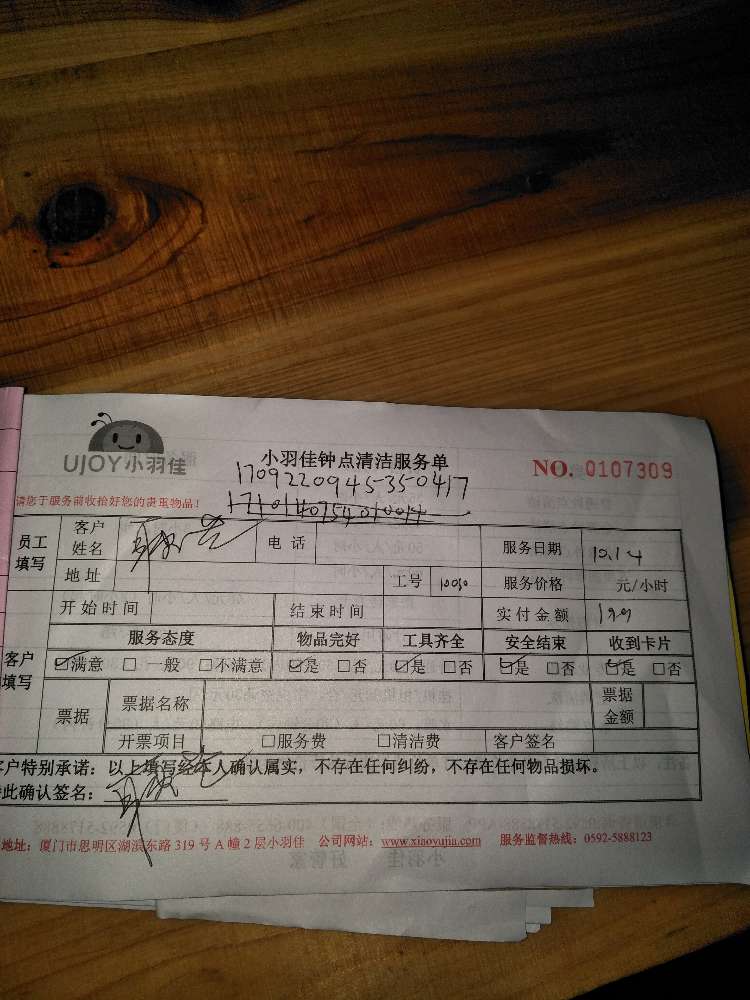 UJOY小羽佳
小羽佳钟点清洁服务单
NO. 0107309
1709220945350417
请您于服务前收拾好您的贵重物品!
员工填写 客户姓名 电话 服务日期 10.14
地址 工号 服务价格 元/小时
开始时间 结束时间 实付金额 199
服务态度 物品完好 工具齐全 安全结束 收到卡片
客户填写 ☑满意 □一般 □不满意 ☑是 □否 ☑是 □否 ☑是 □否 ☑是 □否
票据 票据名称 票据金额
开票项目 □服务费 □清洁费 客户签名
客户特别承诺:以上填写经本人确认属实,不存在任何纠纷,不存在任何物品损坏。
特此确认签名:
地址:厦门市思明区湖滨东路319号A幢2层小羽佳 公司网站:www.xiaoyujia.com 服务监督热线:0592-5888123